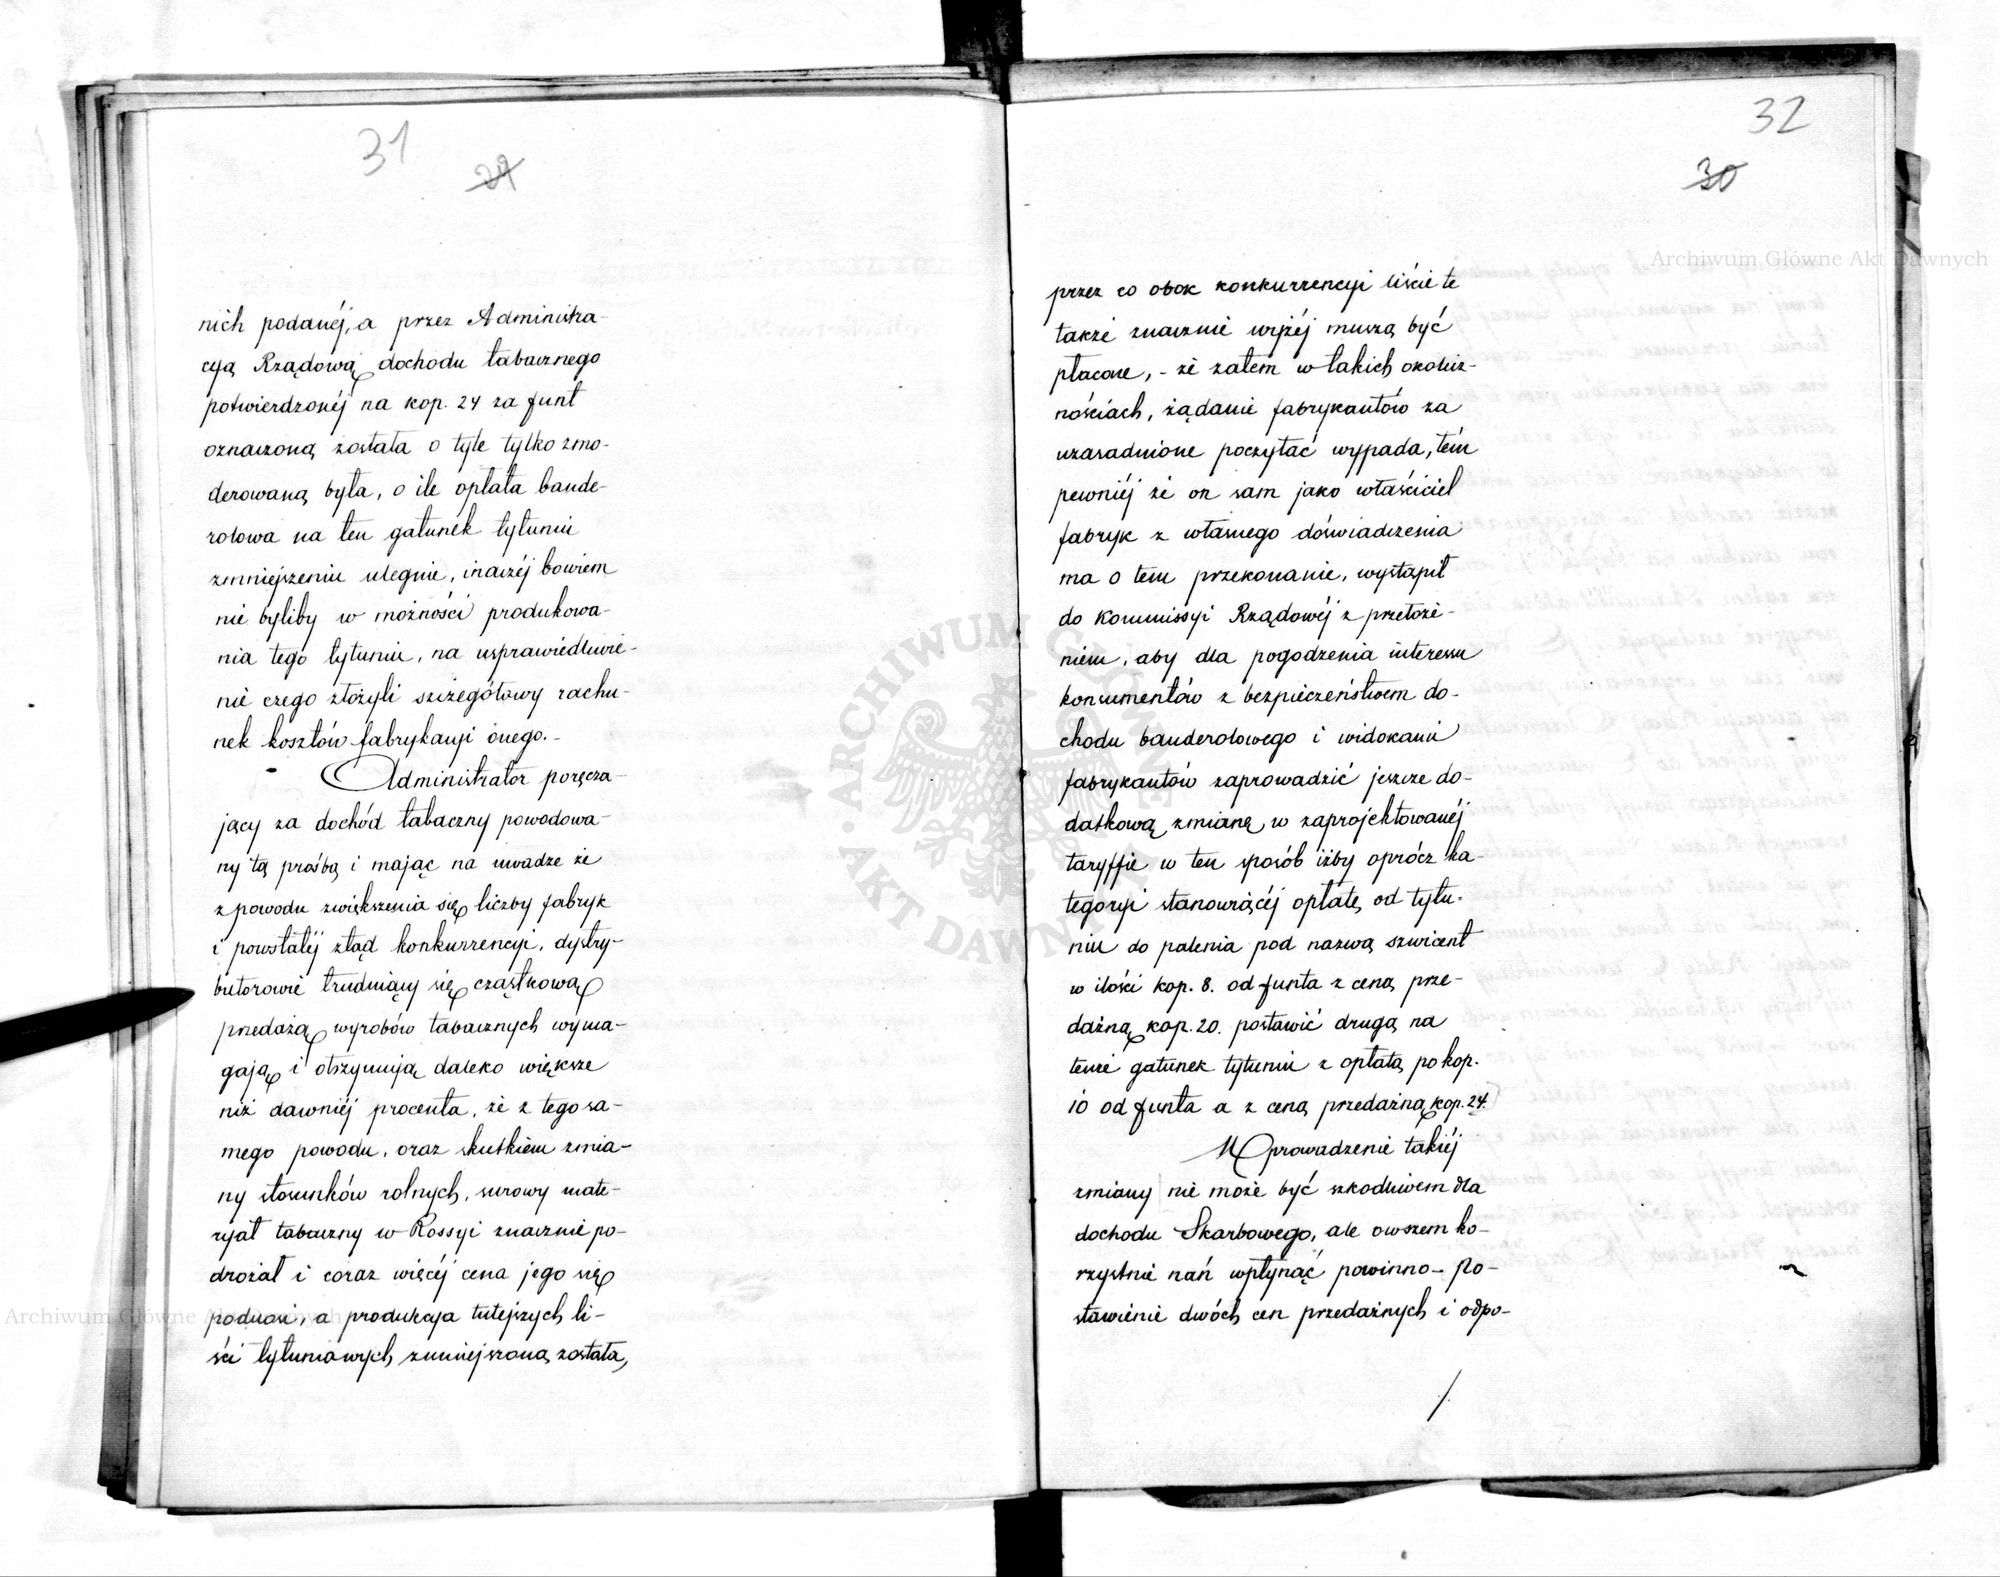 31
29
nich podanéj, a przez Administra-
cyą Rządową dochodu tabacznego
potwierdzonéj na kop. 24 za funt
oznaczoną została o tyle tylko zmo-
derowaną była, o ile opłata bande-
rolowa na ten gatunek tytuniu
zmniejszeniu ulegnie, inaczéj bowiem
nie byliby w możności produkowa-
nia tego tytuniu, na usprawiedliwie-
nie czego złożyli szczegółowy rachu-
nek kosztów fabrykacyi onego.-
Administrator poręcza-
jący za dochód tabaczny powodowa-
ny tą prośbą i mając na uwadze że
z powodu zwiększenia się liczby fabryk
i powstałéj ztąd konkurrencyi, dystry-
butorowie trudniący się cząstkową
przedażą wyrobów tabacznych wyma-
gają i otrzymują daleko większe
niż dawniéj procenta, że z tego sa-
mego powodu, oraz skutkiem zmia-
ny stosunków rolnych, surowy mate-
ryał tabaczny w Rossyi znacznie po-
drożał i coraz więcéj cena jego się
podnosi, a produkcya tutejszych li-
ści tytuniowych zmniejszoną została,
32
30
przez co obok konkurrencyi liście te
także znacznie wyżéj muszą być
płacone, - że zatem w takich okolicz-
nościach, żądanie fabrykantów za
uzasadnione poczytać wypada, tém
pewniéj że on sam jako właściciel
fabryk z własnego doświadczenia
ma o tem przekonanie, wystąpił
do Kommissyi Rządowéj z przełoże-
niem, aby dla pogodzenia interessu
konsumentów z bezpieczeństwem do-
chodu banderolowego i widokami
fabrykantów zaprowadzić jeszcze do-
datkową zmianę w zaprojektowanéj
taryffie w ten sposób iżby oprócz ka-
tegoryi stanowiącéj opłatę od tytu-
niu do palenia pod nazwą szwicent
w ilości kop. 8. od funta z ceną prze-
dażną kop. 20. postawić drugą na
tenże gatunek tytuniu z opłatą po kop.
10 od funta a z ceną przedażną kop. 24.
Wprowadzenie takiéj
zmiany nie może być szkodliwem dla
dochodu Skarbowego, ale owszem ko-
rzystnie nań wpłynąć powinno - Po-
stawienie dwóch cen przedażnych i odpo-
Archiwum Główne Akt Dawnych
Archiwum Główne Akt Dawnych
ARCHIWUM GŁÓWNE
AKT DAWNYCH